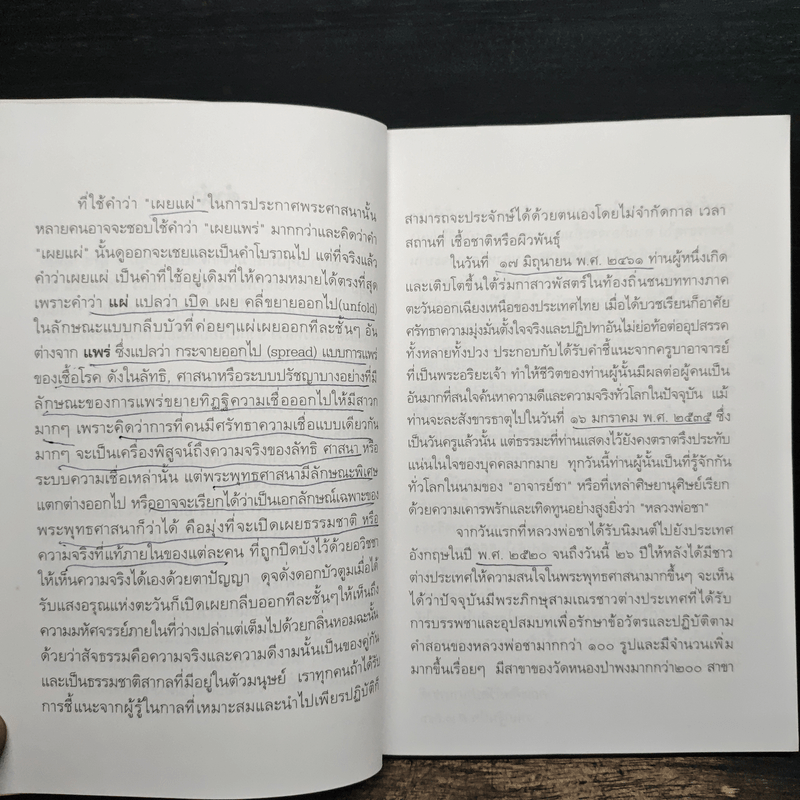 ที่ใช้คำว่า "เผยแผ่" ในการประกาศพระศาสนานั้น
หลายคนอาจจะชอบใช้คำว่า "เผยแพร่" มากกว่าและคิดว่าคำ
"เผยแผ่" นั้นดูออกจะเชยและเป็นคำโบราณไป แต่ที่จริงแล้ว
คำว่าเผยแผ่ เป็นคำที่ใช้อยู่เดิมที่ให้ความหมายได้ตรงที่สุด
เพราะคำว่า แผ่ แปลว่า เปิด เผย คลี่ขยายออกไป(unfold)
ในลักษณะแบบกลีบบัวที่ค่อยๆแผ่เผยออกทีละชั้นๆ อัน
ต่างจาก แพร่ ซึ่งแปลว่า กระจายออกไป (spread) แบบการแพร่
ของเชื้อโรค ดังในลัทธิ, ศาสนาหรือระบบปรัชญาบางอย่างที่มี
ลักษณะของการแพร่ขยายทิฏฐิความเชื่อออกไปให้มีสาวก
มากๆ เพราะคิดว่าการที่คนมีศรัทธาความเชื่อแบบเดียวกัน
มากๆ จะเป็นเครื่องพิสูจน์ถึงความจริงของลัทธิ ศาสนา หรือ
ระบบความเชื่อเหล่านั้น แต่พระพุทธศาสนามีลักษณะพิเศษ
แตกต่างออกไป หรืออาจจะเรียกได้ว่าเป็นเอกลักษณ์เฉพาะของ
พระพุทธศาสนาก็ว่าได้ คือมุ่งที่จะเปิดเผยธรรมชาติ หรือ
ความจริงที่แท้ภายในของแต่ละคน ที่ถูกปิดบังไว้ด้วยอวิชชา
ให้เห็นความจริงได้เองด้วยตาปัญญา ดุจดั่งดอกบัวตูมเมื่อได้
รับแสงอรุณแห่งตะวันก็เปิดเผยกลีบออกทีละชั้นๆให้เห็นถึง
ความมหัศจรรย์ภายในที่ว่างเปล่าแต่เต็มไปด้วยกลิ่นหอมฉะนั้น
ด้วยว่าสัจธรรมคือความจริงและความดีงามนั้นเป็นของคู่กัน
และเป็นธรรมชาติสากลที่มีอยู่ในตัวมนุษย์ เราทุกคนถ้าได้รับ
การชี้แนะจากผู้รู้ในกาลที่เหมาะสมและนำไปเพียรปฏิบัติก็
สามารถจะประจักษ์ได้ด้วยตนเองโดยไม่จำกัดกาล เวลา
สถานที่ เชื้อชาติหรือผิวพันธุ์
ในวันที่ ๑๗ มิถุนายน พ.ศ. ๒๔๖๑ ท่านผู้หนึ่งเกิด
และเติบโตขึ้นใต้ร่มกาสาวพัสตร์ในท้องถิ่นชนบททางภาค
ตะวันออกเฉียงเหนือของประเทศไทย เมื่อได้บวชเรียนก็อาศัย
ศรัทธาความมุ่งมั่นตั้งใจจริงและปฏิปทาอันไม่ย่อท้อต่ออุปสรรค
ทั้งหลายทั้งปวง ประกอบกับได้รับคำชี้แนะจากครูบาอาจารย์
ที่เป็นพระอริยะเจ้า ทำให้ชีวิตของท่านผู้นั้นมีผลต่อผู้คนเป็น
อันมากที่สนใจค้นหาความดีและความจริงทั่วโลกในปัจจุบัน แม้
ท่านจะละสังขารธาตุไปในวันที่ ๑๖ มกราคม พ.ศ. ๒๕๓๕ ซึ่ง
เป็นวันครูแล้วนั้น แต่ธรรมะที่ท่านแสดงไว้ยังคงตราตรึงประทับ
แน่นในใจของบุคคลมากมาย ทุกวันนี้ท่านผู้นั้นเป็นที่รู้จักกัน
ทั่วโลกในนามของ "อาจารย์ชา" หรือที่เหล่าศิษยานุศิษย์เรียก
ด้วยความเคารพรักและเทิดทูนอย่างสูงยิ่งว่า "หลวงพ่อชา"
จากวันแรกที่หลวงพ่อชาได้รับนิมนต์ไปยังประเทศ
อังกฤษในปี พ.ศ. ๒๕๒๐ จนถึงวันนี้ ๒๖ ปีให้หลังได้มีชาว
ต่างประเทศให้ความสนใจในพระพุทธศาสนามากขึ้นๆ จะเห็น
ได้ว่าปัจจุบันมีพระภิกษุสามเณรชาวต่างประเทศที่ได้รับ
การบรรพชาและอุปสมบทเพื่อรักษาข้อวัตรและปฏิบัติตาม
คำสอนของหลวงพ่อชามากกว่า ๑๐๐ รูปและมีจำนวนเพิ่ม
มากขึ้นเรื่อยๆ มีสาขาของวัดหนองป่าพงมากกว่า๒๐๐ สาขา